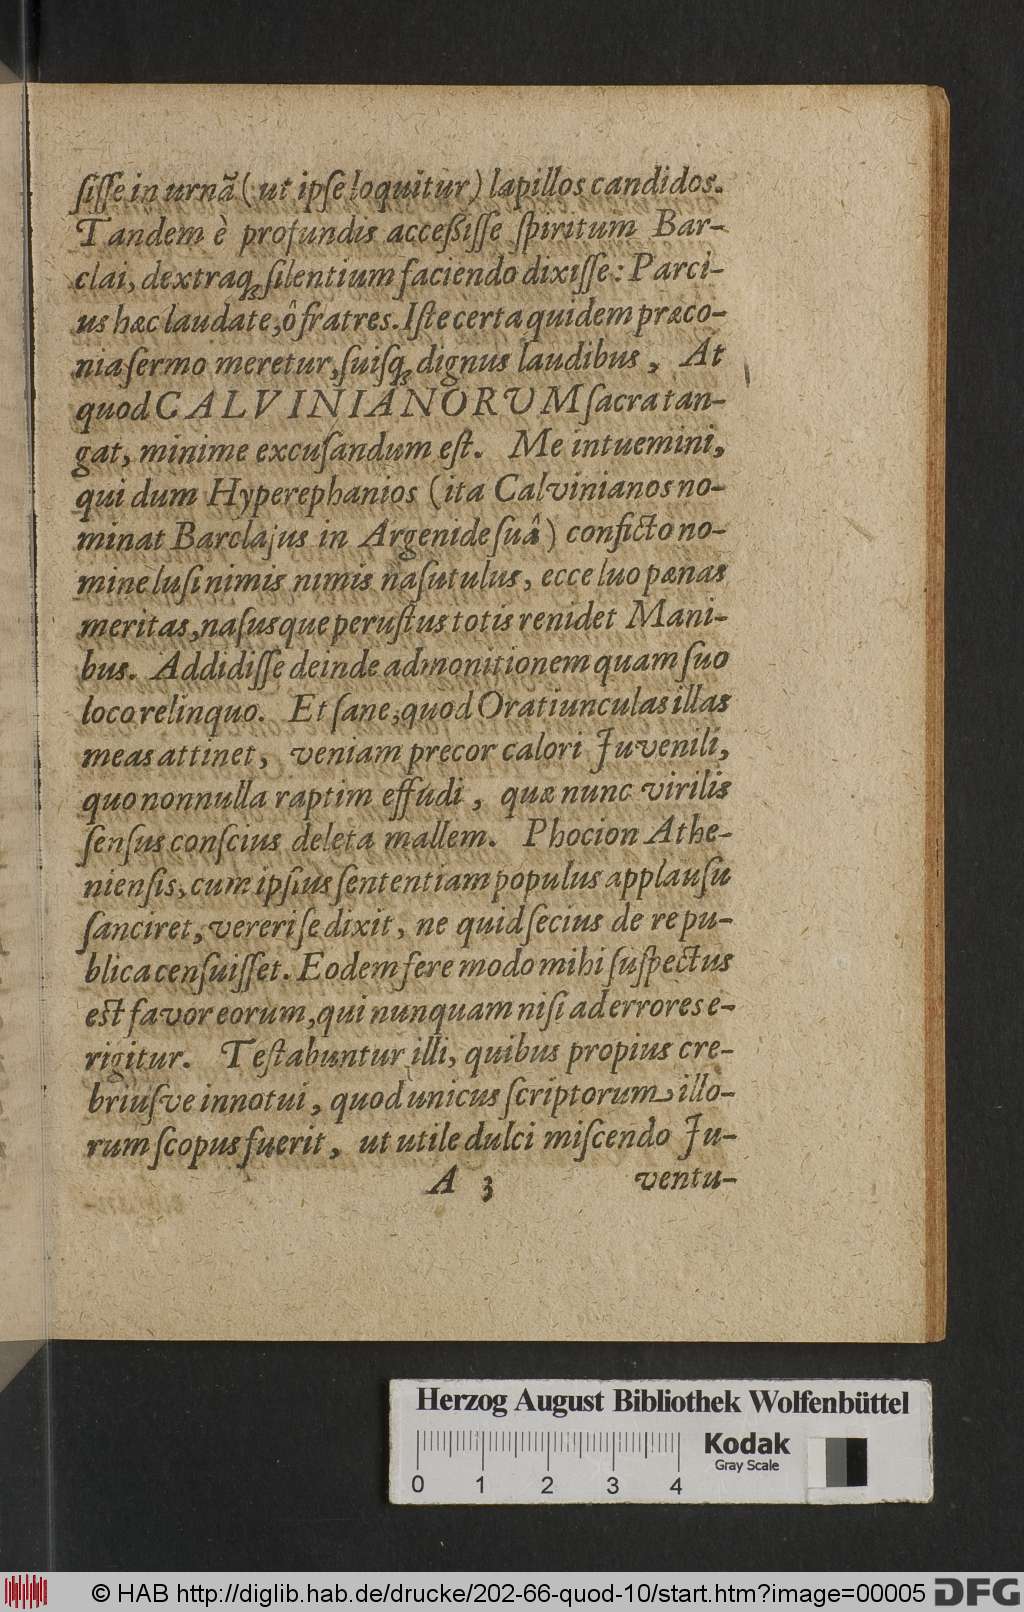 ſiſſe in urnã ( ut ipſe loquitur ) lapillos candidos.
Tandem è profundis acceßiſſe ſpiritum Bar-
clai, dextraq; ſilentium faciendo dixiſſe: Parci-
us hæc laudate, ô fratres. Iſte certa quidem præco-
nia ſermo meretur, ſuiſq; dignus laudibus, At
quod CALVINIANORUM ſacra tan-
gat, minime excuſandum eſt. Me intuemini,
qui dum Hyperephanios (ita Calvinianos no-
minat Barclajus in Argenide ſuâ) conficto no-
mine luſi nimis nimis naſutulus, ecce luo pænas
meritas, naſusque peruſtus totis renidet Mani-
bus. Addidiſſe deinde admonitionem quam ſuo
loco relinquo. Et ſane, quod Oratiunculas illas
meas attinet, veniam precor calori Juvenili,
quo nonnulla raptim effudi, quæ nunc virilis
ſenſus conſcius deleta mallem. Phocion Athe-
nienſis, cum ipſius ſententiam populus applauſu
ſanciret, vereri ſe dixit, ne quid ſecius de repu-
blica cenſuiſſet. Eodem fere modo mihi ſuſpectus
eſt favor eorum, qui nunquam niſi ad errores e-
rigitur. Teſtabuntur illi, quibus propius cre-
briuſve innotui, quod unicus ſcriptorum illo-
rum ſcopus fuerit, ut utile dulci miſcendo Ju-
A 3 ventu-
Herzog August Bibliothek Wolfenbüttel
Kodak
Gray Scale
0 1 2 3 4
© HAB http://diglib.hab.de/drucke/202-66-quod-10/start.htm?image=00005
DFG